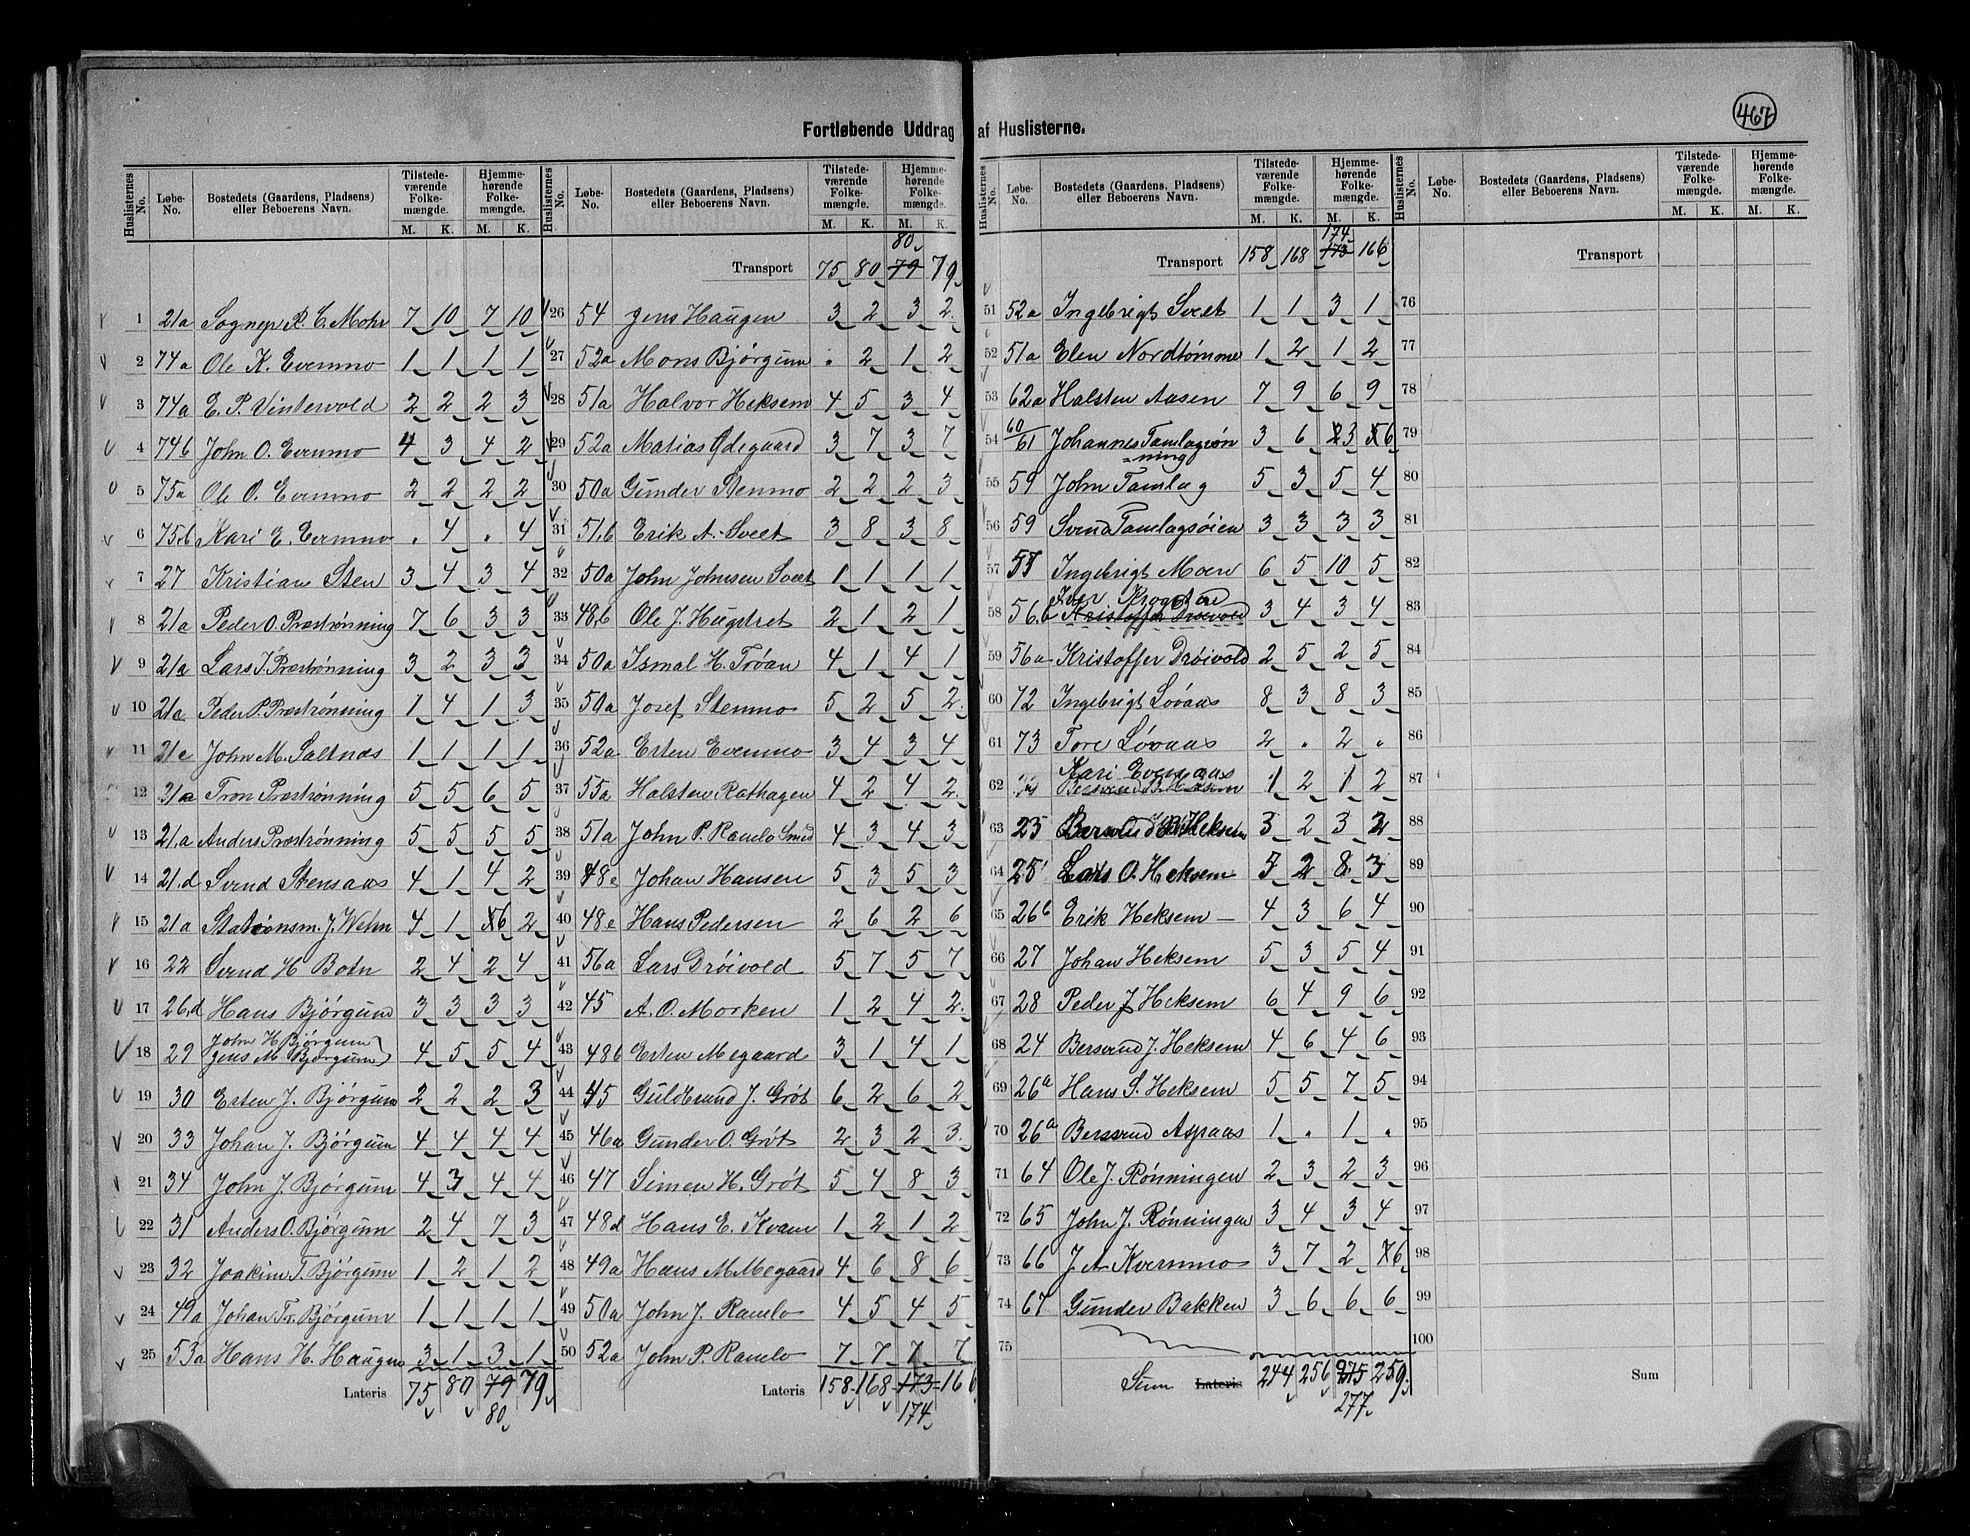 467
Fortløbende Uddrag af Huslisterne.
Huslisternes No. Løbe-No. Bostedets (Gaardens, Pladsens) eller Beboerens Navn. Tilstedeværende Folkemængde. M. K. Hjemmehørende Folkemængde. M. K.
1 21a Sognepr R. C. Mohr 7 10 7 10
2 74a Ole K. Evenmo 1 1 1 1
3 74a E. P. Vintervold 2 2 2 3
4 74b John O. Evenmo 4 3 4 2
5 75a Ole O. Evenmo 2 2 2 2
6 75b Kari E. Evenmo . 4 . 4
7 27 Kristian Sten 3 4 3 4
8 21a Peder O. Præstrønning 7 6 3 3
9 21a Lars J. Præstrønning 3 2 3 3
10 21c Peder P. Præstrønning 1 4 1 3
11 21c John M. Saltnæs 1 1 1 1
12 21a Tron Præstrønning 5 5 6 5
13 21.a Anders Præstrønning 5 5 5 5
14 21.d Svend Stensaas 4 1 4 2
15 21a Stationsm. J. Wehn 4 1 6 2
16 22 Svend H Botn 2 4 2 4
17 26.d Hans Bjørgum 3 3 3 3
18 29 John H Bjørgum
Jens M Bjørgum 4 5 5 4
19 30 Esten J. Bjørgum 2 2 2 3
20 33 Johan J. Bjørgum 4 4 4 4
21 34 John J. Bjørgum 4 3 4 4
22 31 Anders O. Bjørgum 2 4 7 3
23 32 Joakim T. Bjørgum 1 2 1 2
24 49a Johan Tr. Bjørgum 1 1 1 1
25 53a Hans H. Haugen 3 1 3 1
Lateris 75 80 79 79
80
Huslisternes No. Løbe-No. Bostedets (Gaardens, Pladsens) eller Beboerens Navn. Tilstedeværende Folkemængde. M. K. Hjemmehørende Folkemængde. M. K.
80
Transport 75 80 79 79
26 54 Jens Haugen 3 2 3 2
27 52a Mons Bjørgum . 2 1 2
28 51a Halvor Heksem 4 5 3 4
29 52a Matias Ødegaard 3 7 3 7
30 50a Gunder Stenmo 2 2 2 3
31 51.b Erik A. Sveet 3 8 3 8
32 50a John Johnsen Sveet 1 1 1 1
33 48b Ole J. Hugstret 2 1 2 1
34 50a Ismal H. Trøan 4 1 4 1
35 50a Josef Stenmo 5 2 5 2
36 52a Esten Evenmo 3 4 3 4
37 55a Halsten Rathagen 4 2 4 2
38 51a John P. Ramlo Smed 4 3 4 3
39 48e Johan Hansen 5 3 5 3
40 48e Hans Pedersen 2 6 2 6
41 56a Lars Drøivold 5 7 5 7
42 45 A. O. Morken 1 2 4 2
43 48b Esten Megaard 3 1 4 1
44 45 Guldbrand J. Grøt 6 2 6 2
45 46a Gunder O. Grøt 2 3 2 3
46 47 Simen H. Grøt 5 4 8 3
47 48d Hans E. Kvam 1 2 1 2
48 49a Hans M. Megaard 4 6 8 6
49 50a John J. Ramlo 4 5 4 5
50 52a John P. Ramlo 7 7 7 7
Lateris 158 168 173 166
174
Huslisternes No. Løbe-No. Bostedets (Gaardens, Pladsens) eller Beboerens Navn. Tilstedeværende Folkemængde. M. K. Hjemmehørende Folkemængde. M. K.
174
Transport 158 168 173 166
51 52a Ingebrigt Sveet 1 1 3 1
52 51a Elen Nordtømme 1 2 1 2
53 62a Halsten Aasen 7 9 6 9
54 60/61 Johannes Tamlagrøn
=ning 3 6 3 6
55 59 John Tamlag 5 3 5 4
56 59 Svend Tamlagsøien 3 3 3 3
57 57 Ingebrigt Moen 6 5 10 5
Iver Krogstad
58 56.b Kristoffer Drøivold 3 4 3 4
59 56a Kristoffer Drøivold 2 5 2 5
60 72 Ingebrigt Løvaas 8 3 8 3
61 73 Tore Løvaas 2 . 2 .
Kari Evenaas
62 Bersvend B. Heksem 1 2 1 2
63 25 Bersvend Heksem 3 2 3 2
64 25 Lars O. Heksem 7 2 8 3
65 26b Erik Heksem 4 3 6 4
66 27 Johan Heksem 5 3 5 4
67 28 Peder J Heksem 6 4 9 6
68 24 Bersvend J. Heksem 4 6 4 6
69 26a Hans S. Heksem 5 5 7 5
70 26a Bersvend Aspaas 1 . 1 .
71 64 Ole J. Rønningen 2 3 2 3
72 65 John J. Rønningen 3 4 3 4
73 66 J. A. Kvernmo 3 7 2 6
74 67 Gunder Bakken 3 6 6 6
75
Sum Lateris 244 256 275 259
277
Huslisternes No. Løbe-No. Bostedets (Gaardens, Pladsens) eller Beboerens Navn. Tilstedeværende Folkemængde. M. K. Hjemmehørende Folkemængde. M. K.
Transport
76
77
78
79
80
81
82
83
84
85
86
87
88
89
90
91
92
93
94
95
96
97
98
99
100
Sum